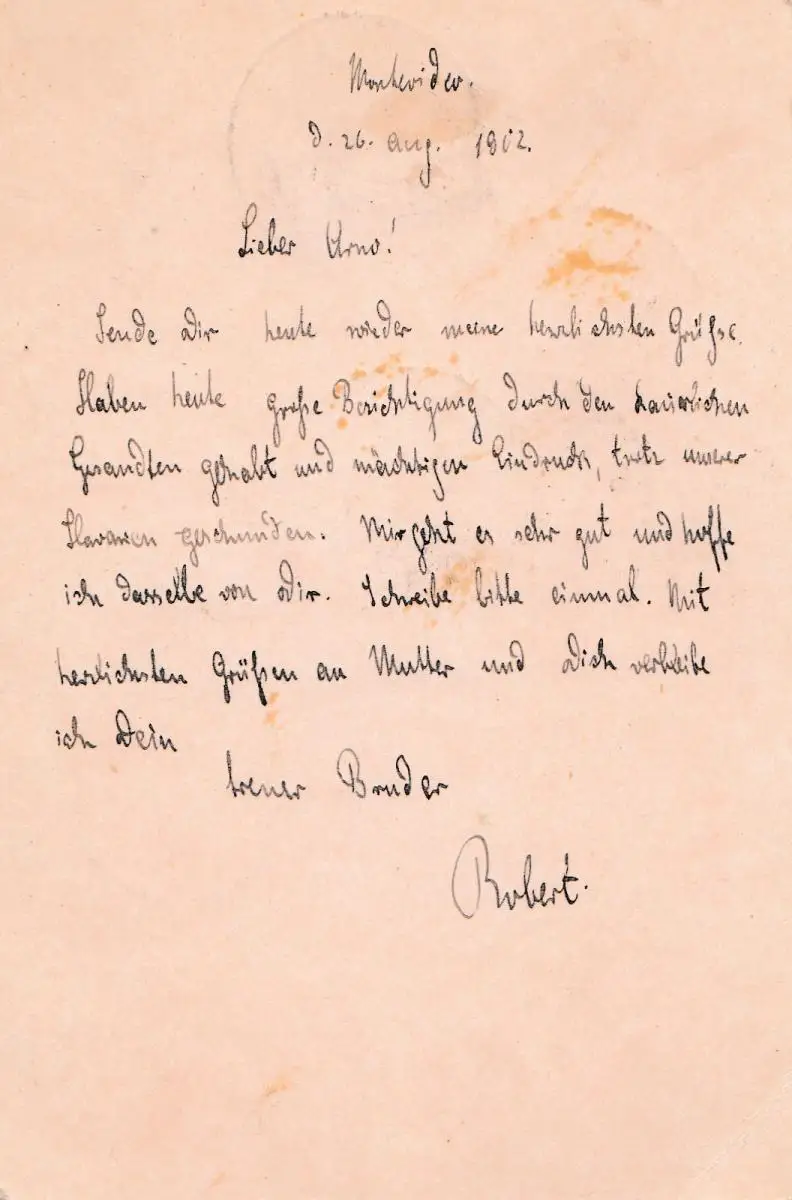 Montevideo.
d. 26. Aug. 1902.
Lieber Arno!
Sende Dir heute wieder meine herzlichsten Grüße.
Haben heute große Besichtigung durch den Kaiserlichen
Gesandten gehabt und mächtigen Eindruck, trotz unserer
Havarien geschunden. Mir geht es sehr gut und hoffe
ich dasselbe von Dir. Schreibe bitte einmal. Mit
herzlichsten Grüßen an Mutter und Dich verbleibe
ich Dein
treuer Bruder
Robert.